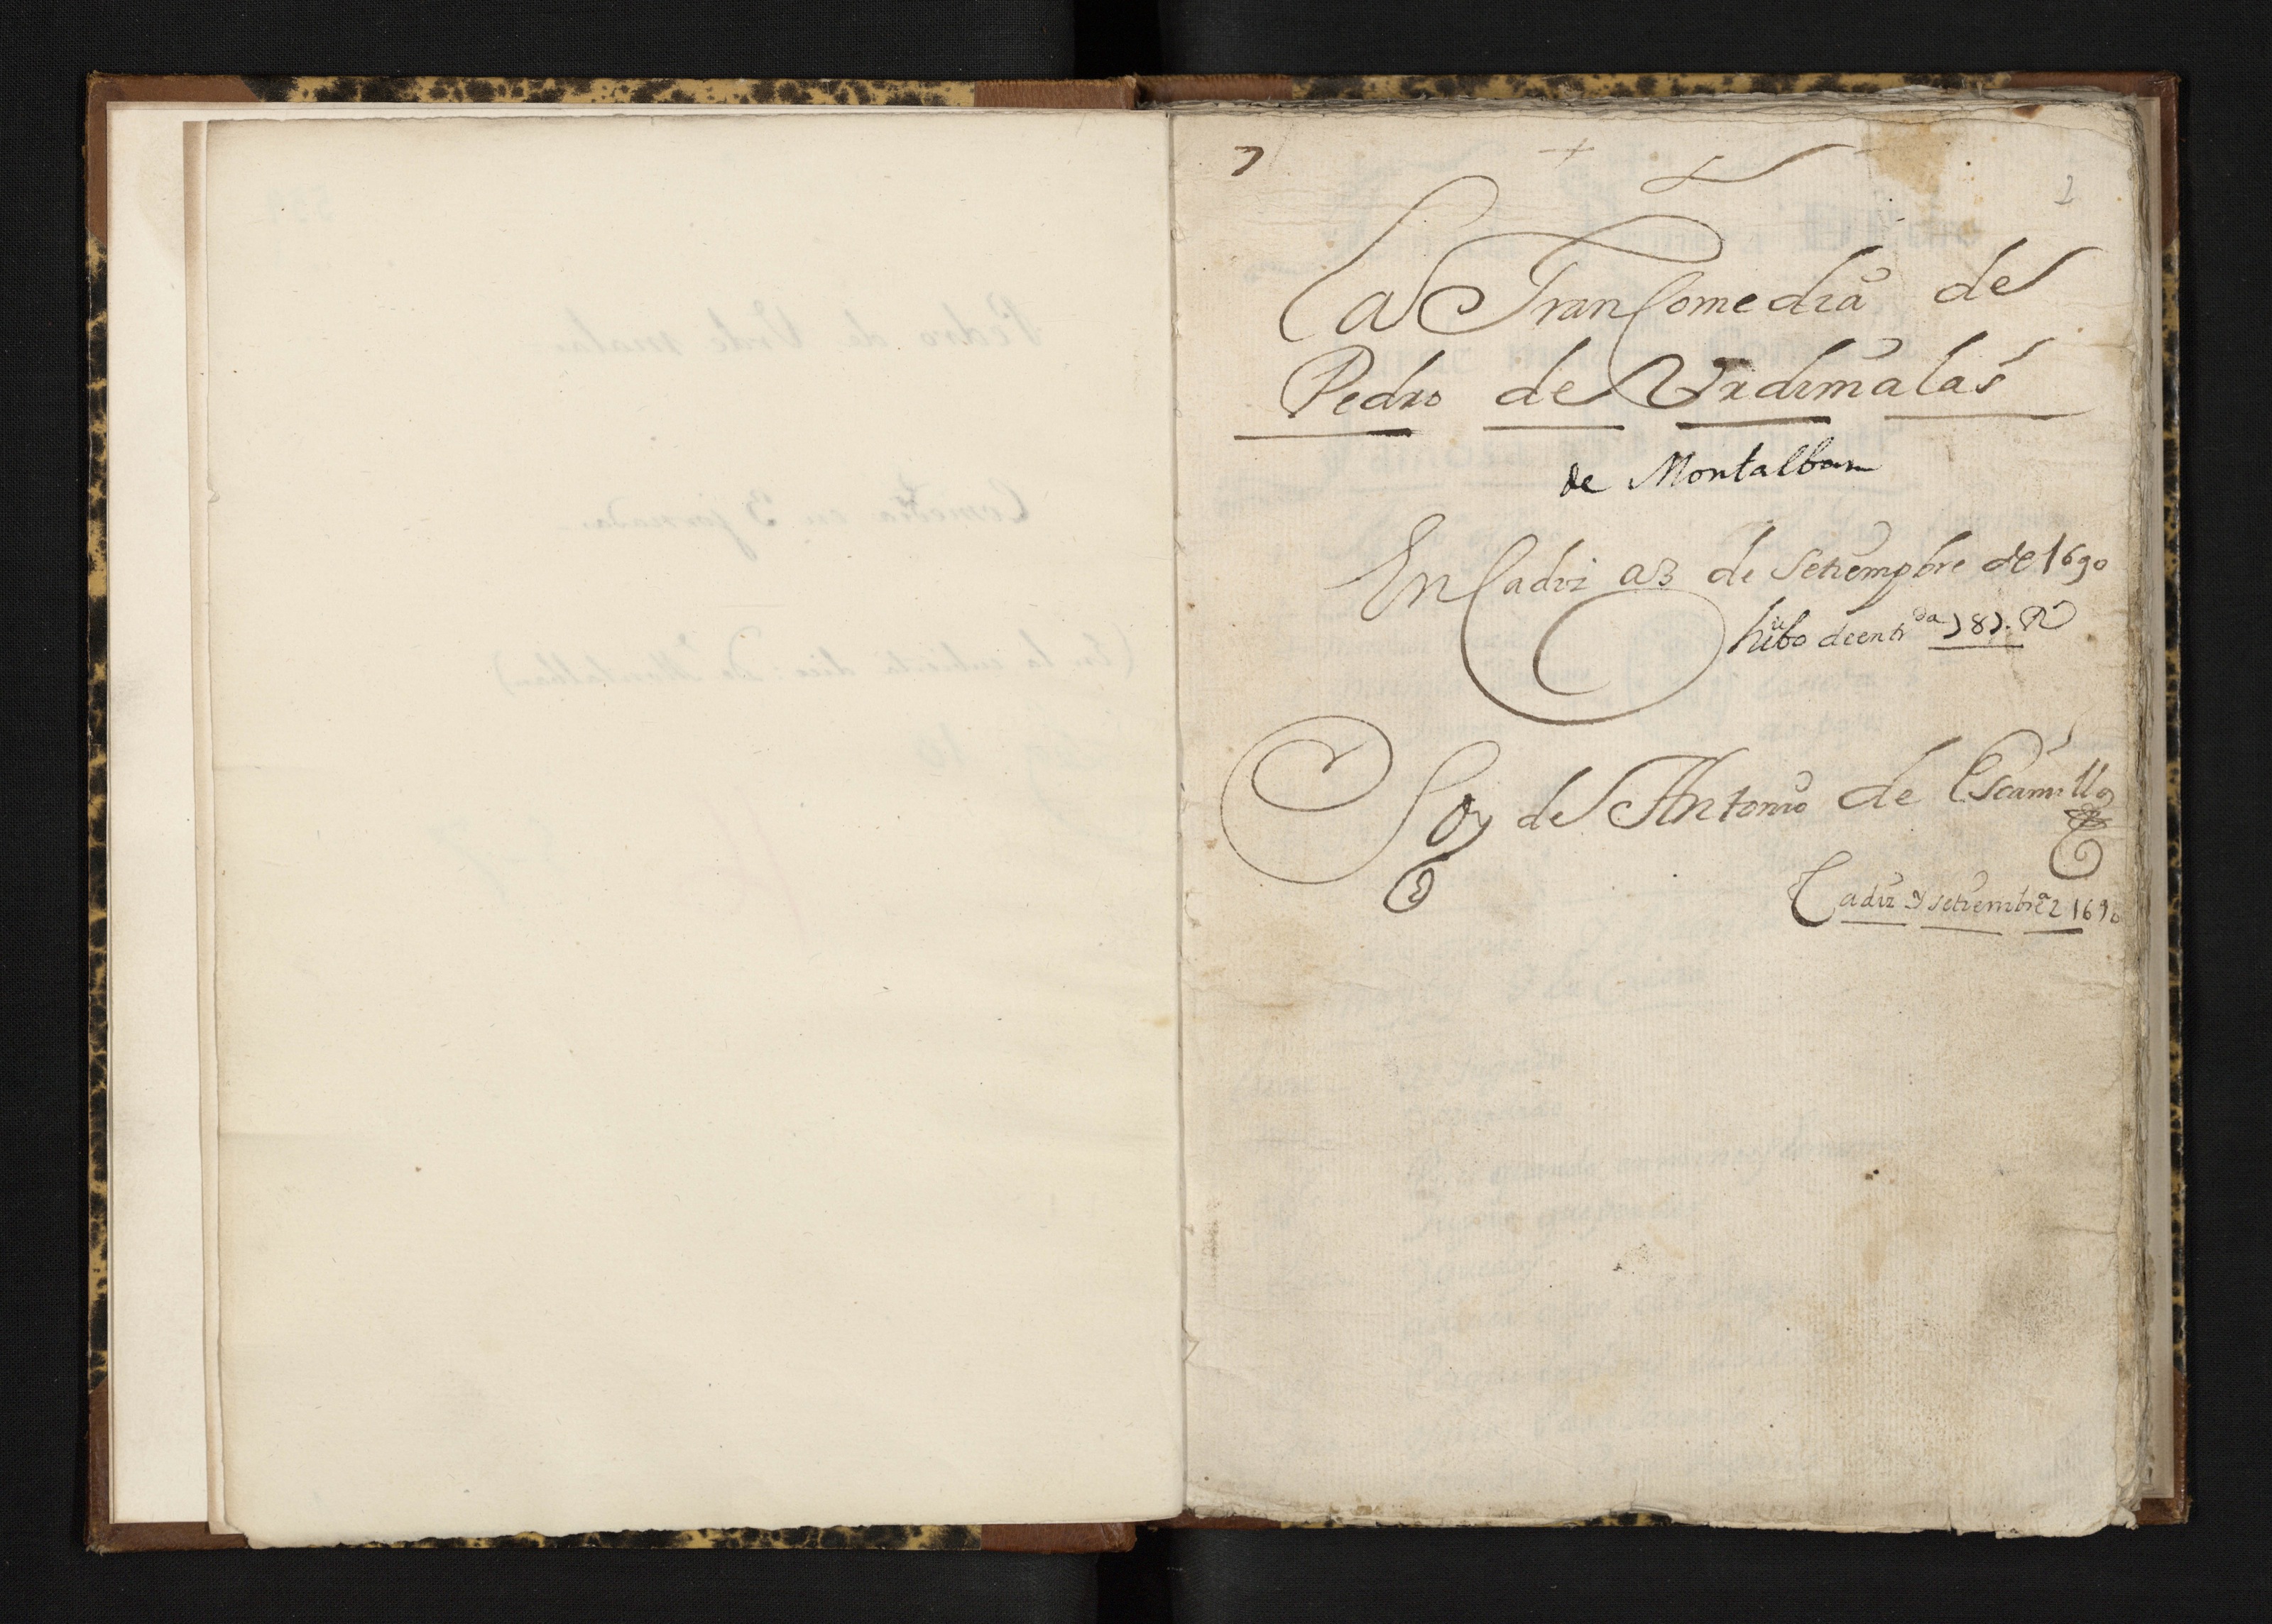 La Gran Comedia de
Pedro de Urdimalas
de Montalban
En Cadiz a 3 de Setiempbre de 1690
hubo de entrda
Soy de Antonio de Escamilla
Cadiz y setiembre 2 1690